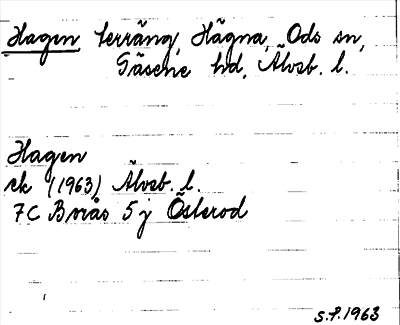 Hagen terräng, Hägna, Ods sn,
Gäsene hd, Älvsb. l.
Hagen
ek (1963) Älvsb. l.
7C Borås 5 j Österod
S.F. 1963